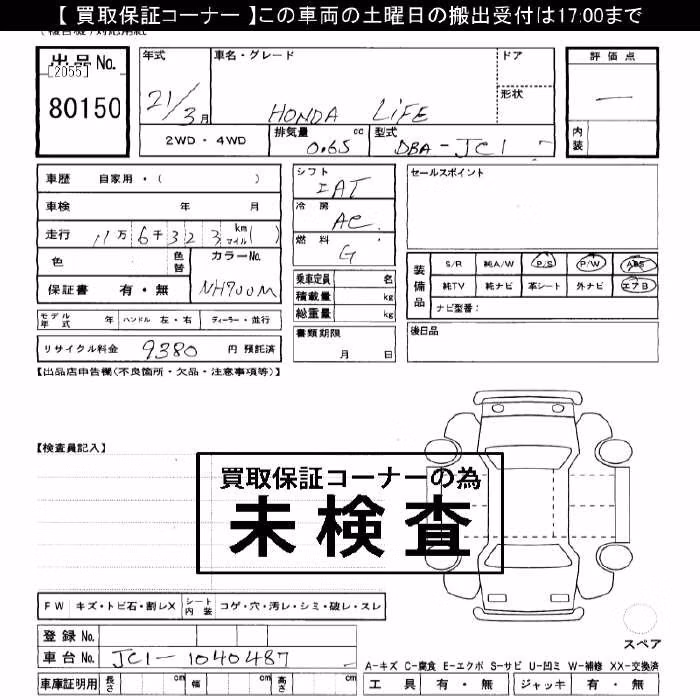 【 買取保証コーナー 】この車両の土曜日の搬出受付は17:00まで
出品No.
[2055]
80150
年式
21/3月
車名・グレード
HONDA LiFE
ドア
形状
評価点
—
内装
2WD・4WD
排気量 cc
0.65
型式
DBA-JC1
車歴 自家用・( )
車検 年 月
走行 11万6千323 km マイル( )
色
色替
カラーNo.
NH700M
保証書 有・無
モデル年式 年 ハンドル 左・右 ディーラー・並行
リサイクル料金 9380 円 預託済
シフト
IAT
冷房
AC
燃料
G
乗車定員 名
積載量 kg
総重量 kg
書類期限
月 日
セールスポイント
装備品
S/R 純A/W P/S P/W ABS
純TV 純ナビ 革シート 外ナビ エアB
ナビ型番:
後日品
【出品店申告欄(不良箇所・欠品・注意事項等)】
【検査員記入】
買取保証コーナーの為
未検査
FW キズ・トビ石・割レX シート内装 コゲ・穴・汚レ・シミ・破レ・スレ
登録No.
車台No. JC1-1040487
車庫証明用 長さ cm 幅 cm 高さ cm
スペア
A-キズ C-腐食 E-エクボ S-サビ U-凹ミ W-補修 XX-交換済
工具 有・無 ジャッキ 有・無